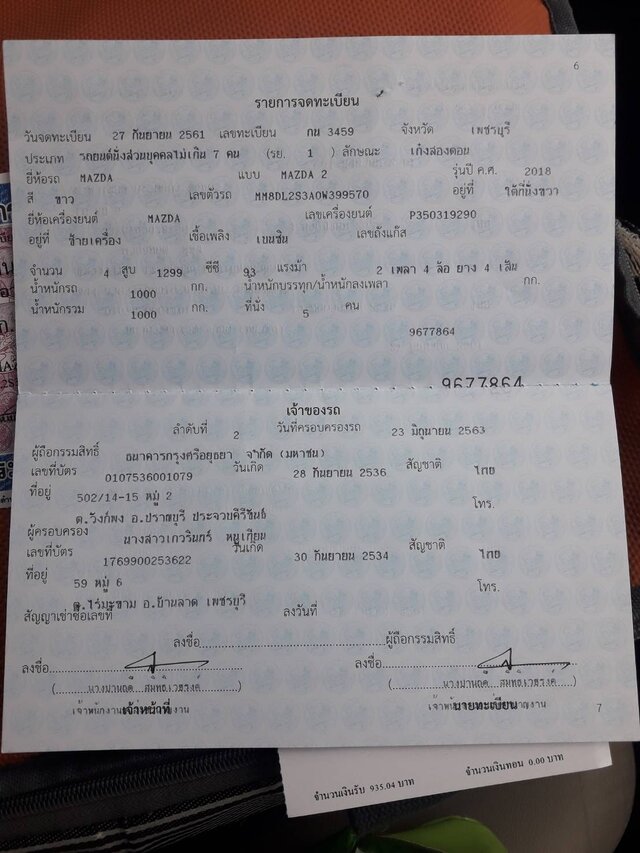 6
รายการจดทะเบียน
วันจดทะเบียน 27 กันยายน 2561 เลขทะเบียน กน 3459 จังหวัด เพชรบุรี
ประเภท รถยนต์นั่งส่วนบุคคลไม่เกิน 7 คน (รย. 1 ) ลักษณะ เก๋งสองตอน
ยี่ห้อรถ MAZDA แบบ MAZDA 2 รุ่นปี ค.ศ. 2018
สี ขาว เลขตัวรถ MM8DL2S3A0W399570 อยู่ที่ ใต้ที่นั่งขวา
ยี่ห้อเครื่องยนต์ MAZDA เลขเครื่องยนต์ P350319290
อยู่ที่ ซ้ายเครื่อง เชื้อเพลิง เบนซิน เลขถังแก๊ส
จำนวน 4 สูบ 1299 ซีซี 93 แรงม้า 2 เพลา 4 ล้อ ยาง 4 เส้น
น้ำหนักรถ 1000 กก. น้ำหนักบรรทุก/น้ำหนักลงเพลา กก.
น้ำหนักรวม 1000 กก. ที่นั่ง 5 คน
9677864
9677864
เจ้าของรถ
ลำดับที่ 2 วันที่ครอบครองรถ 23 มิถุนายน 2563
ผู้ถือกรรมสิทธิ์ ธนาคารกรุงศรีอยุธยา จำกัด (มหาชน)
เลขที่บัตร 0107536001079 วันเกิด 28 กันยายน 2536 สัญชาติ ไทย
ที่อยู่ 502/14-15 หมู่ 2 โทร.
ต.วังก์พง อ.ปราณบุรี ประจวบคีรีขันธ์
ผู้ครอบครอง นางสาวเกวรินทร์ หนูเทียม
เลขที่บัตร 1769900253622 วันเกิด 30 กันยายน 2534 สัญชาติ ไทย
ที่อยู่ 59 หมู่ 6 โทร.
ต.ไร่มะขาม อ.บ้านลาด เพชรบุรี
สัญญาเช่าซื้อเลขที่ ลงวันที่
ลงชื่อ ผู้ถือกรรมสิทธิ์
ลงชื่อ ลงชื่อ
เจ้าหน้าที่ นายทะเบียน
7
จำนวนเงินรับ 935.04 บาท จำนวนเงินทอน 0.00 บาท